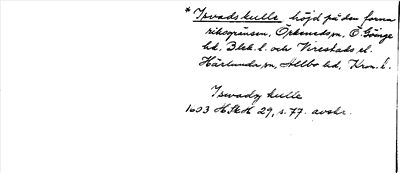 * Isvadskulle höjd på den forna
riksgränsen, Örkeneds sn, Ö. Göinge
hd, Blek. l. och Virestads sn
Härlunda sn, Allbo hd, Kron. l.
Isvadz kulle
1603 HSkH 29, s. 77. avskr.